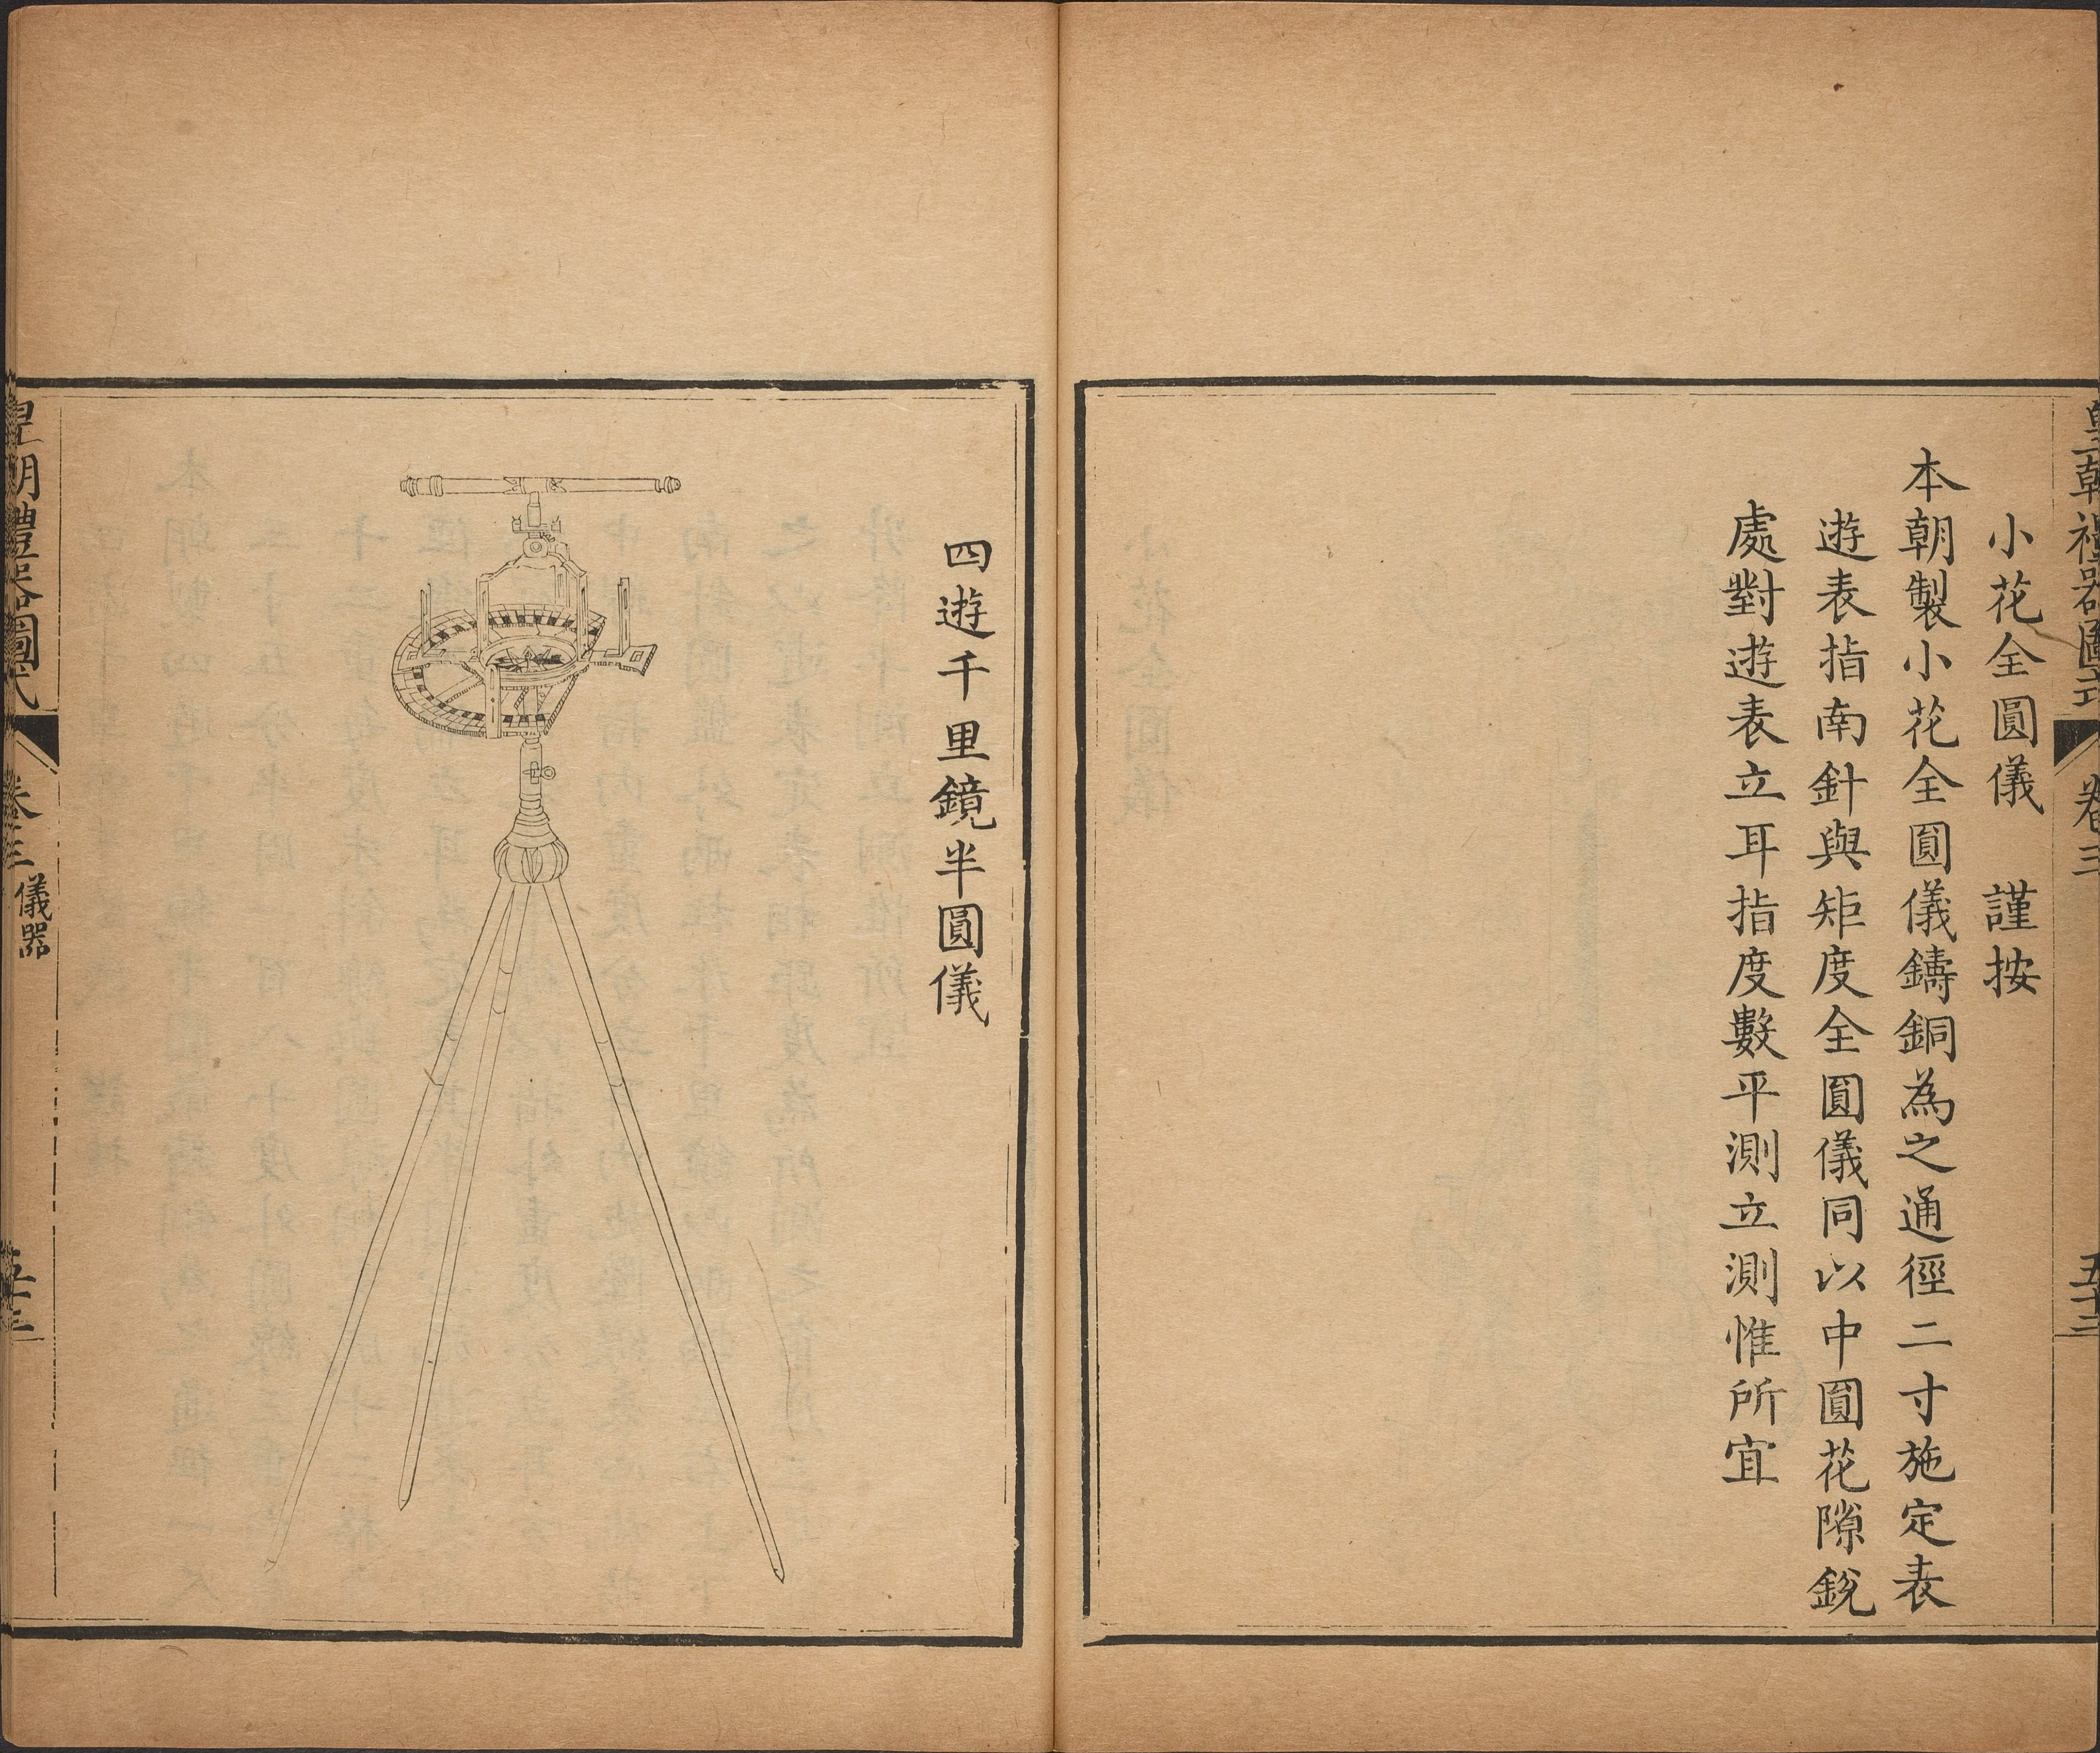 皇朝禮器圖式
卷三
五十三
小花全圓儀　謹按
本朝製小花全圓儀鑄銅為之通徑二寸施定表
遊表指南針與矩度全圓儀同以中圓花隙銳
處對遊表立耳指度數平測立測惟所宜
四遊千里鏡半圓儀
皇朝禮器圖式
卷三
儀器